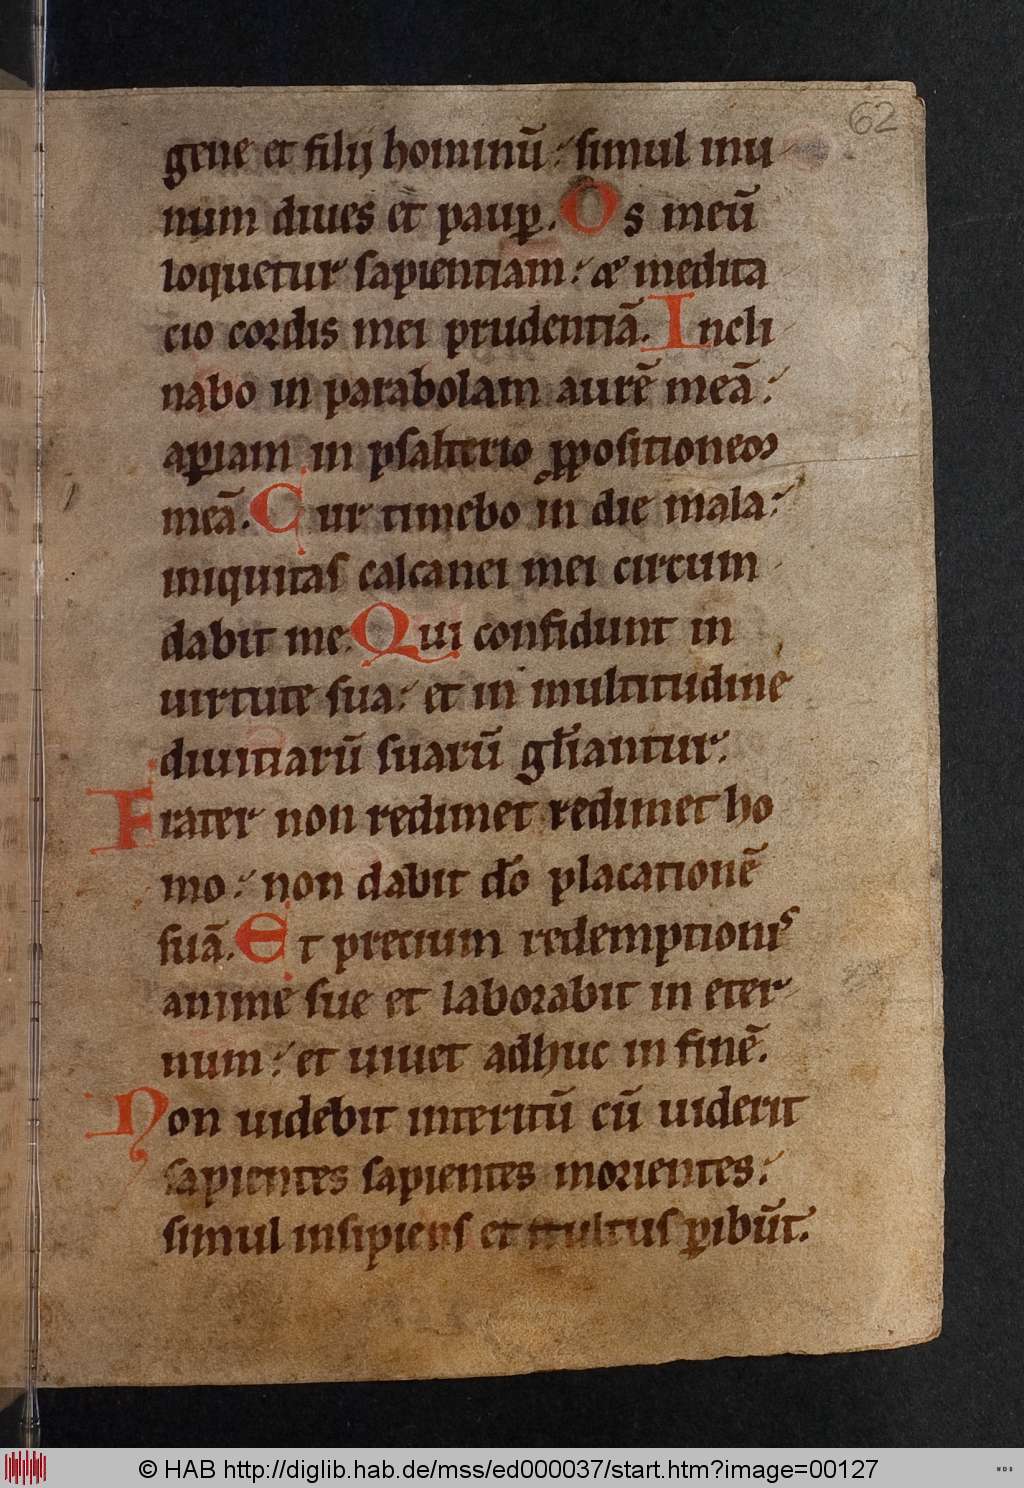 62
gene et filij hominū: simul inu
num diues et paup̱. Os meū
loquetur sapientiam: & medita
cio cordis mei prudentiā. Incli
nabo in parabolam aurē meā:
ap̱iam in psalterio p̱positioneɔ
meā. Cur timebo in die mala:
iniquitas calcanei mei circum
dabit me. Qui confidunt in
uirtute sua: et in multitudine
diuitiarū suarū gl̄iantur:
Frater non redimet redimet ho
mo: non dabit dō placationē
suā. Et precium redemptionis
anime sue et laborabit in eter
num: et uiuet adhuc in finē.
Non uidebit interitū cū uiderit
sapientes sapientes morientes:
simul insipiens et stultus p̱ibūt.
© HAB http://diglib.hab.de/mss/ed000037/start.htm?image=00127